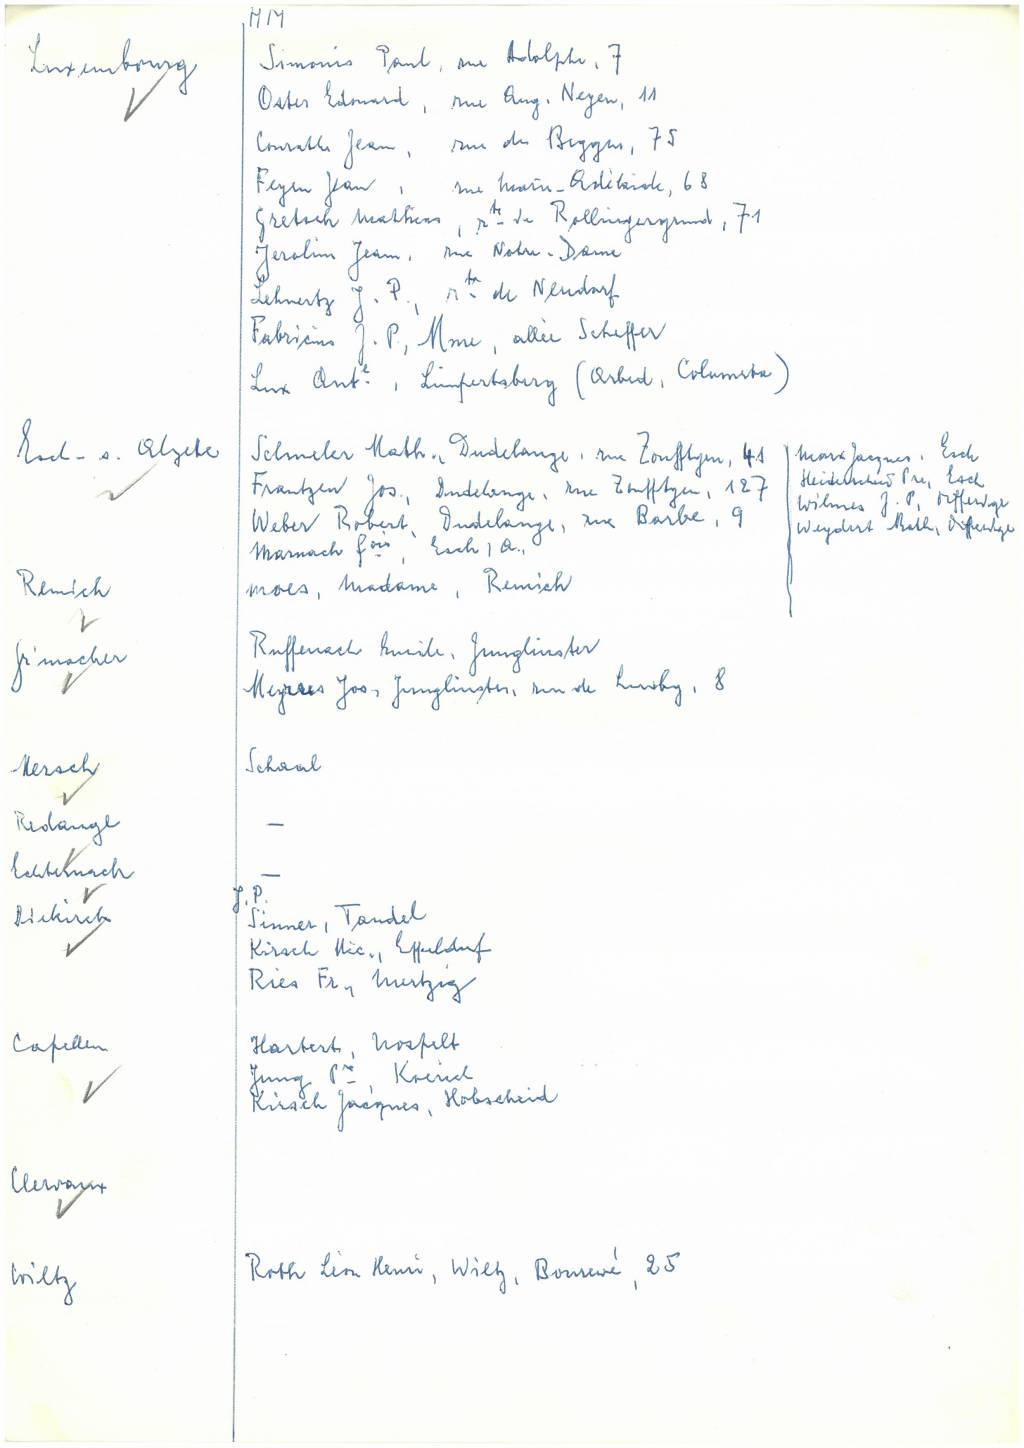 MM
Luxembourg
Simonis Paul, rue Adolphe, 7
Oster Edouard, rue Aug. Neyen, 11
Conrath Jean, rue des Beggen, 75
Feyen Jean, rue Marie-Adélaïde, 68
Gretsch Mathias, rte de Rollingergrund, 71
Jerolim Jean, rue Notre-Dame
Lehnertz J. P., rte de Neudorf
Fabricius J. P., Mme, allée Scheffer
Lux Ant., Limpertsberg (Arbed, Columeta)
Esch-s. Alzette
Schmeler Math., Dudelange, rue Zoufftgen, 41
Frantzen Jos., Dudelange, rue Zoufftgen, 127
Weber Robert, Dudelange, rue Barbe, 9
Marnach fois, Esch, A.,
Marx Jacques, Esch
Heiderscheid Pre, Esch
Wilmes J. P., Differdge
Weydert Math, Differdge
Remich
Moes, Madame, Remich
Gr'macher
Ruffenach Emile, Junglinster
Meyers Jos, Junglinster, rue de Luxbg, 8
Mersch
Schaal
Redange
—
Echternach
—
Diekirch
J. P.
Sinner, Tandel
Kirsch Nic., Eppeldorf
Ries Fr., Mertzig
Capellen
Harbert, Nospelt
Jung Pre, Koerich
Kirsch Jacques, Hobscheid
Clervaux
Wiltz
Roth Léon Henri, Wiltz, 25